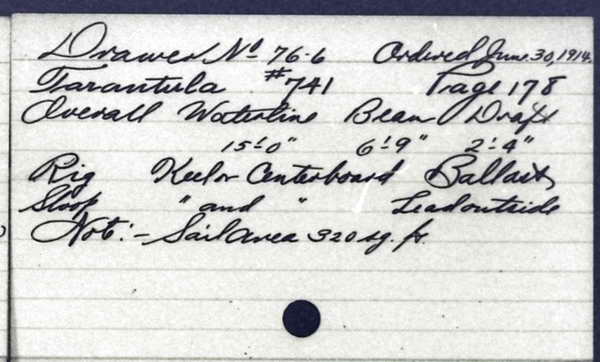 Drawer No 76-6 Ordered June 30, 1914.
Tarantula #741 Page 178
Overall Waterline Beam Draft
15'-0" 6'-9" 2'-4"
Rig Keel or Centerboard Ballast
Sloop " and " Lead outside
Not:- Sail area 320 sq. ft.